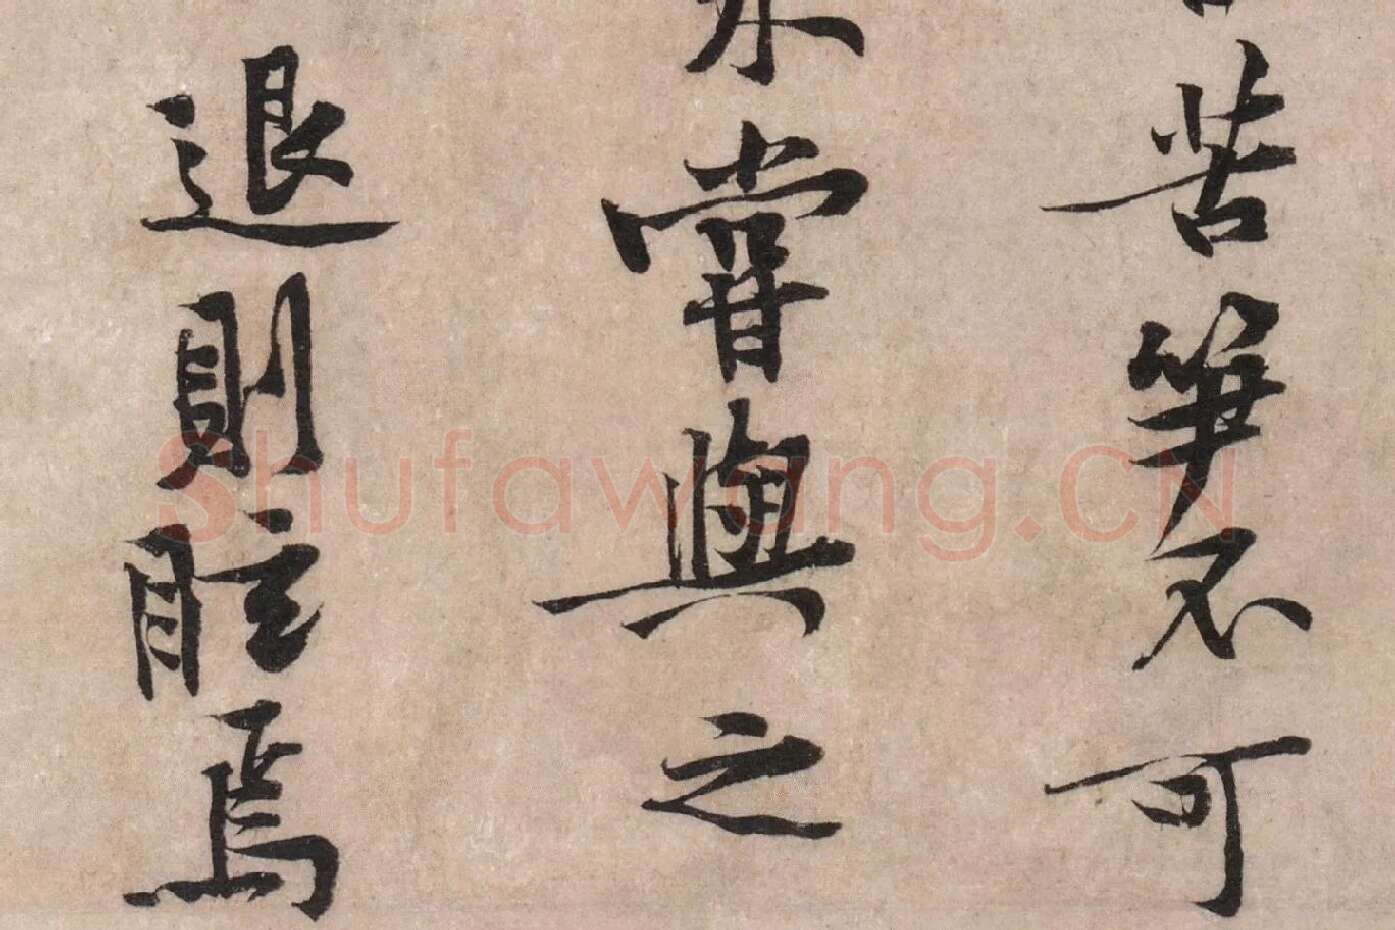 苦笋不可
未嘗與之
退則眩焉
Shufawang.CN